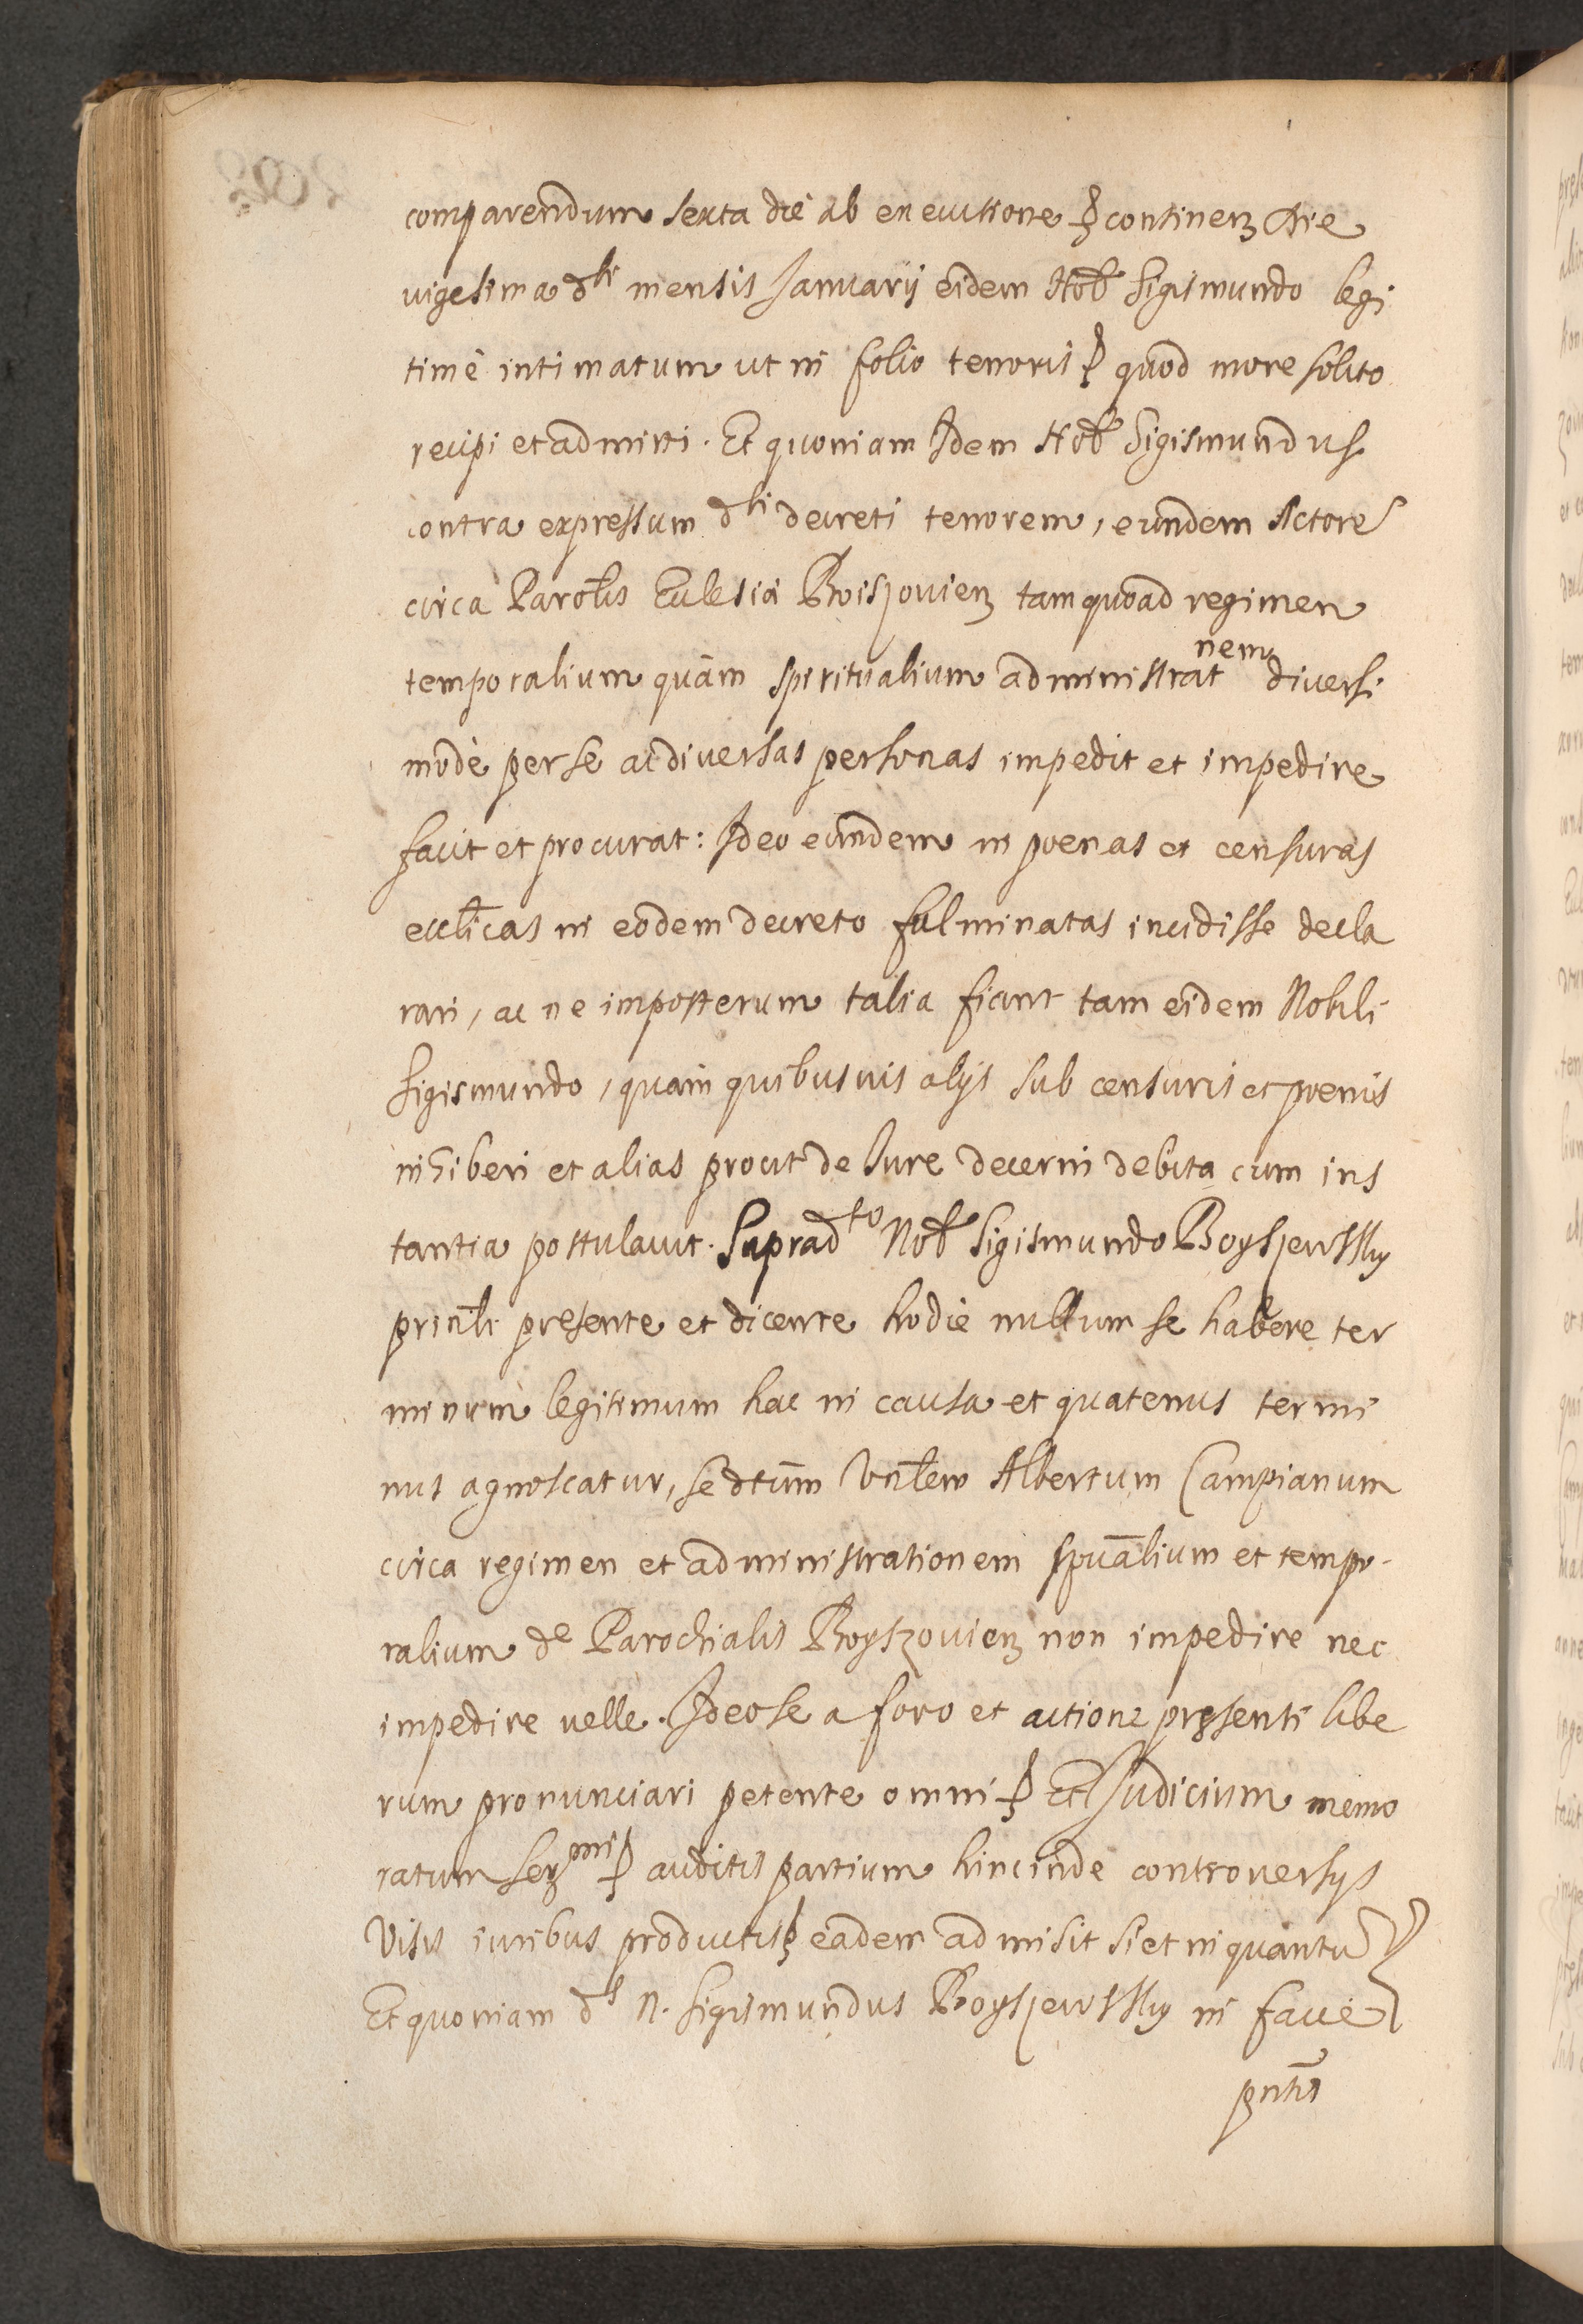 comparendum sexta die ab executione etc continen die
vigesima dti mensis Januarij eidem Nob Sigismundo legi
time intimatum ut in folio tenoris etc quod more solito
recipi et admitti. Et quoniam Idem Nob Sigismundus
contra expressum dti decreti tenorem, eundem Actore
circa Parotlis Eclesiæ Boiszovien tam quoad regimen
temporalium quàm spiritualium administratnem diversi
mode per se ac diversas personas impedit et impedire
facit et procurat: Ideo eundem in poenas et censuras
eccliicas in eodem decreto fulminatas incidisse decla
rari, ac ne imposterum talia fiant tam eidem Nobili
Sigismundo, quàm quibusvis alijs sub censuris et poenis
inhiberi et alias prout de Iure decerni debita cum ins
tantia postulavit. Supradto Nob Sigismundo Boyszewsky
prinlr presente et dicente hodie nullum se habere ter
minum legitimum hac in causa et quatenus termi
nus agnoscatur, se dtum Vnlem Albertum Campianum
circa regimen et administrationem spualium et tempo-
ralium de Parochialis Boyszovien non impedire nec
impedire velle. Ideo se a foro et actione presenti libe
rum pronunciari petente omni etc Et Judicium memo
ratum Ser mi etc auditis partium hincinde controversys
Visis iuribus productis etc eadem admisit si et in quantu etc
Et quoniam ds N. Sigismundus Boyszewsky in facie
pntis